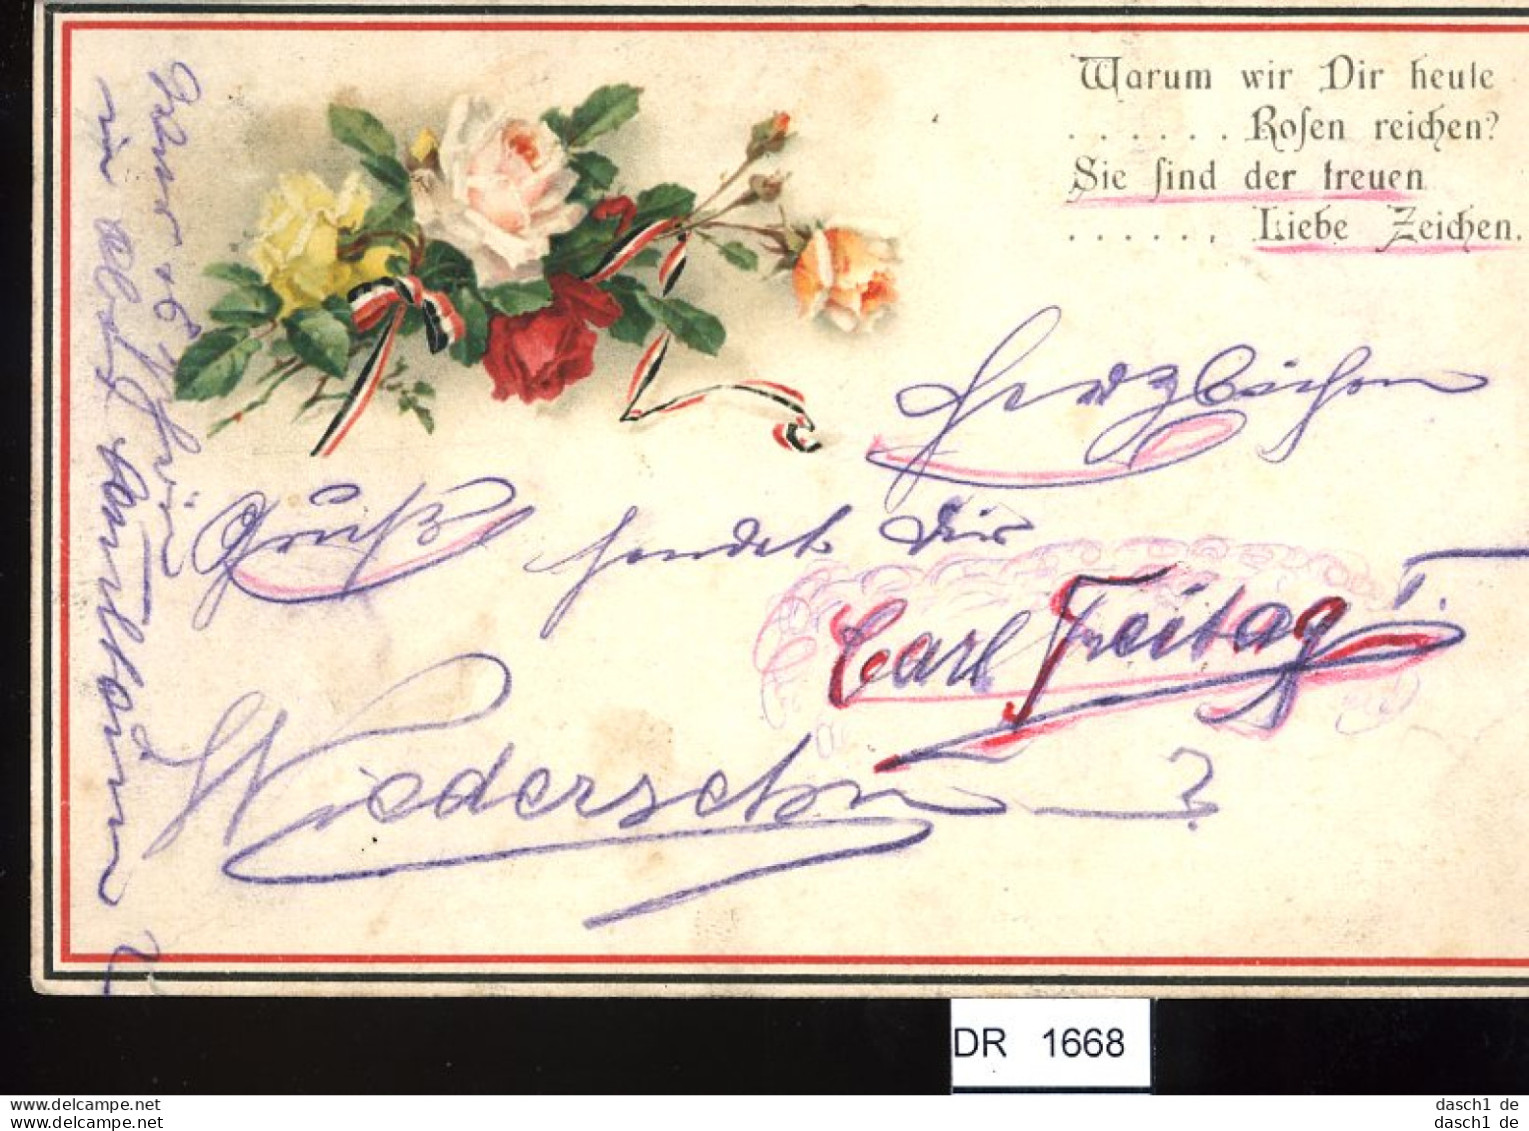 Warum wir Dir heute
. . . . . . Rosen reichen?
Sie sind der treuen
. . . . . . Liebe Zeichen.
Herzlichen
Gruß sendet Dir
Carl Freitag!
Wiedersehn ?
in
DR 1668
www.delcampe.net
our old website
dasch1_de
dasch1_de